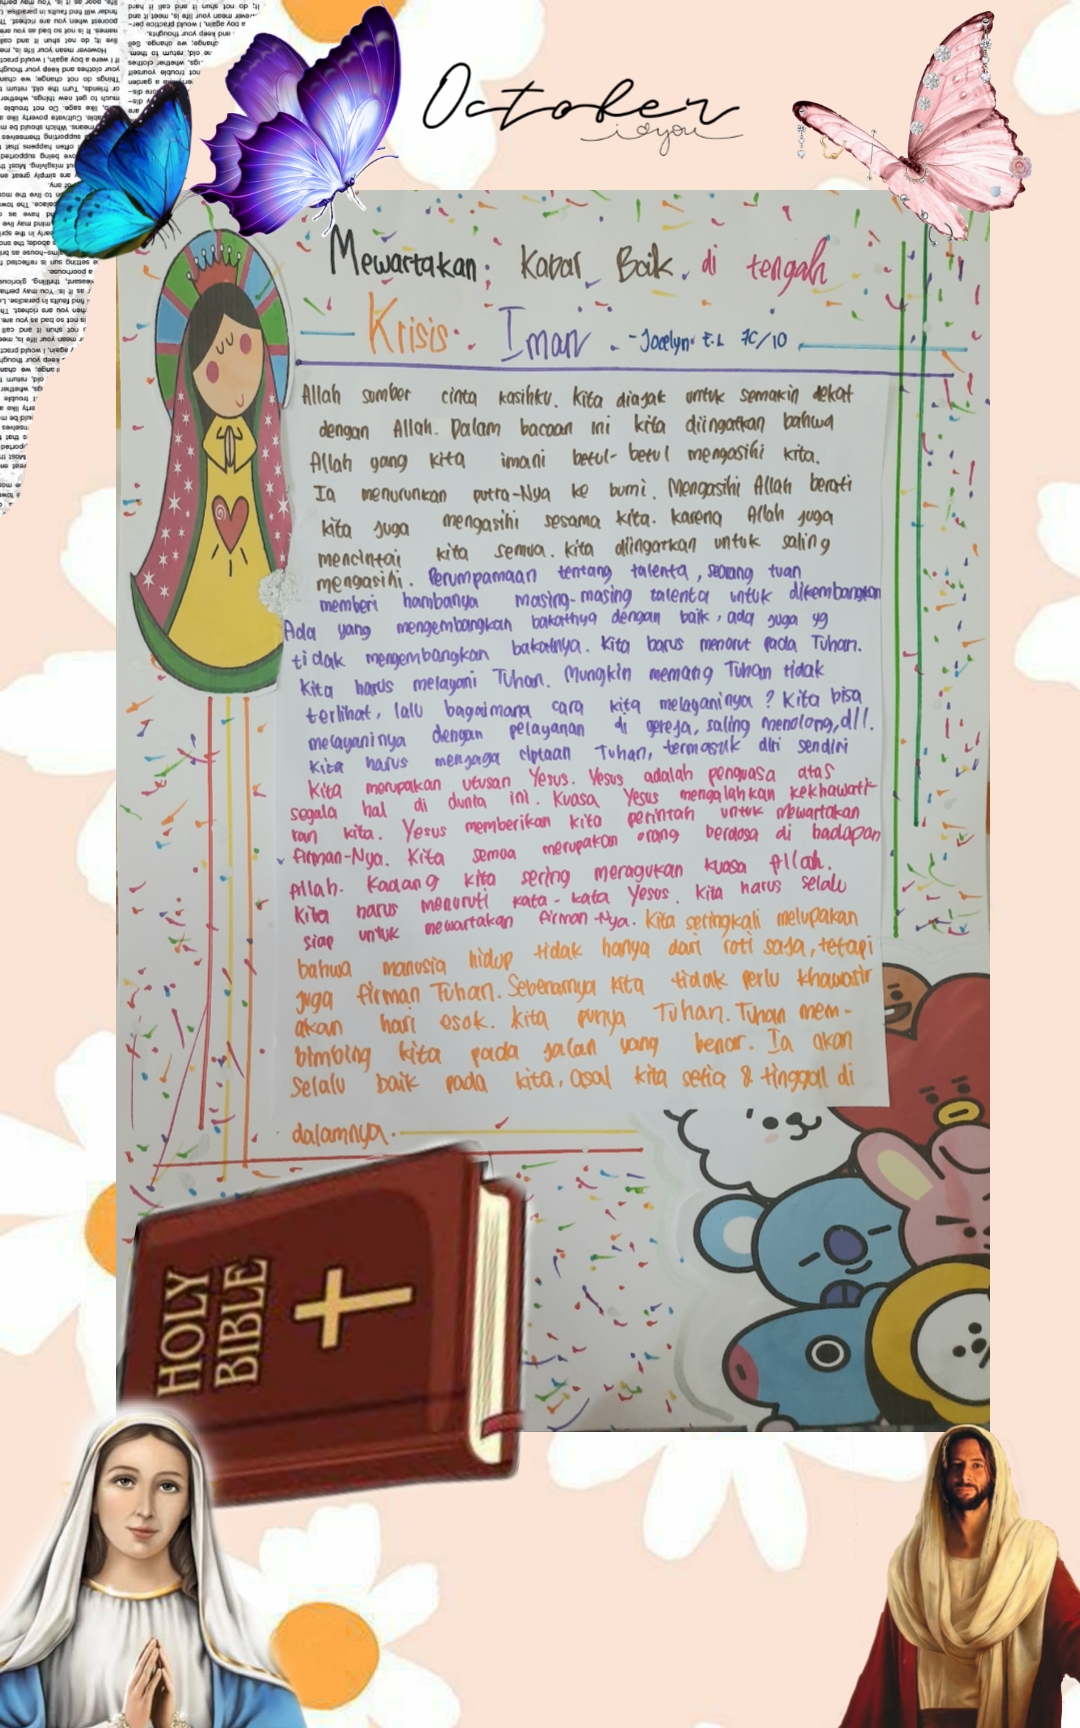 October
i ♡ you
Mewartakan Kabar Baik di tengah
Krisis Iman - Jocelyn E.L 7C/10
Allah sumber cinta kasihku. Kita diajak untuk semakin dekat
dengan Allah. Dalam bacaan ini kita diingatkan bahwa
Allah yang kita imani betul-betul mengasihi kita.
Ia menurunkan putra-Nya ke bumi. Mengasihi Allah berati
kita juga mengasihi sesama kita. karena Allah juga
mencintai kita semua. kita diingatkan untuk saling
mengasihi. Perumpamaan tentang talenta, seorang tuan
memberi hambanya masing-masing talenta untuk dikembangkan
Ada yang mengembangkan bakatnya dengan baik, ada juga yg
tidak mengembangkan bakatnya. Kita harus menurut pada Tuhan.
Kita harus melayani Tuhan. Mungkin memang Tuhan tidak
terlihat, lalu bagaimana cara kita melayaninya? Kita bisa
melayaninya dengan pelayanan di gereja, saling menolong, dll.
Kita harus menjaga ciptaan Tuhan, termasuk diri sendiri
Kita merupakan utusan Yesus. Yesus adalah penguasa atas
segala hal di dunia ini. Kuasa Yesus mengalahkan kekhawati-
ran kita. Yesus memberikan kita perintah untuk mewartakan
firman-Nya. Kita semua merupakan orang berdosa di hadapan
Allah. Kadang kita sering meragukan kuasa Allah.
Kita harus menuruti kata-kata Yesus. Kita harus selalu
siap untuk mewartakan firman-Nya. Kita seringkali melupakan
bahwa manusia hidup tidak hanya dari roti saja, tetapi
juga firman Tuhan. Sebenarnya kita tidak perlu khawatir
akan hari esok. Kita punya Tuhan. Tuhan mem-
bimbing kita pada jalan yang benar. Ia akan
selalu baik pada kita, asal kita setia & tinggal di
dalamnya.
HOLY
BIBLE